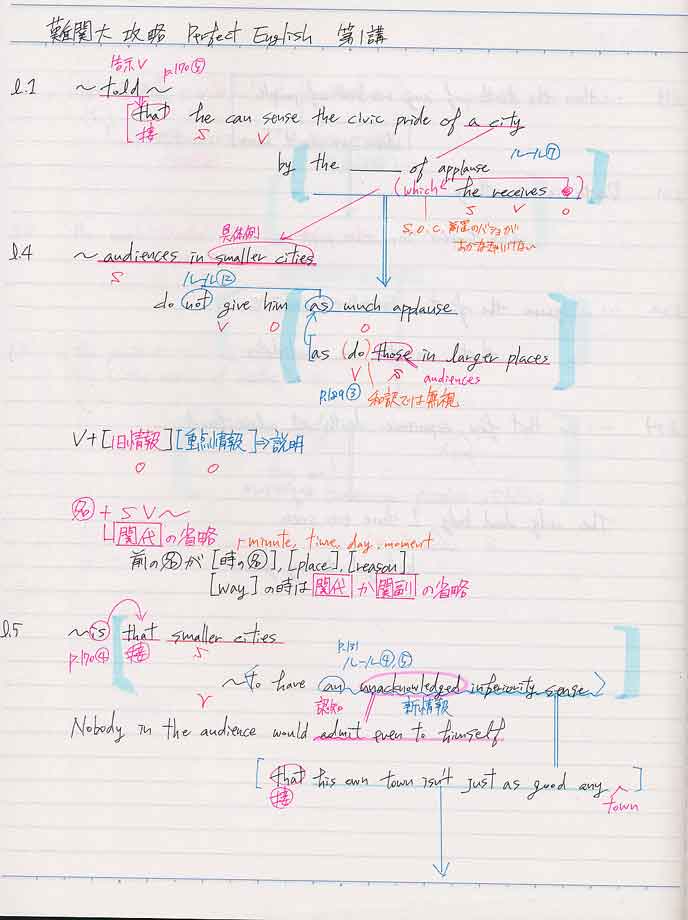 難関大攻略 Perfect English 第1講
告示V p.170⑤
l.1 ~told~
[that he can sense the civic pride of a city
接 S V
by the ____ of applause ルール⑦
(which he receives ●)
S V O
S, O, C, 前置のバショが
あかなきゃいけない
具体例
l.4 ~audiences in smaller cities
S ルール⑫
do not give him as much applause
V O O
[as (do) those in larger places
V S audiences
p.129③ 和訳では無視
V+[旧情報][重点情報]⇒説明
O O
名 + S V ~
関代の省略 minute, time, day, moment
前の名が[時の名], [place], [reason]
[way]の時は関代か関副の省略
l.5 ~is that smaller cities
p.170④ 接 S p.131 ルール④,⑤
~to have an unacknowledged inferiority sense
V 認知 新情報
Nobody in the audience would admit even to himself
[that his own town isn't just as good any]
接 town